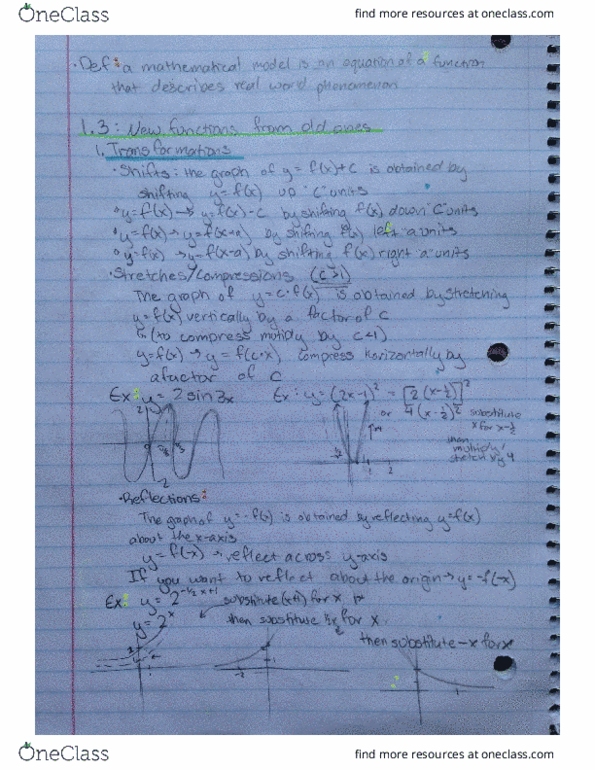 OneClass
find more resources at oneclass.com
· Def: a mathematical model is an equation of a function
that describes real world phenomenon
1.3: New functions from old ones
1. Transformations
· Shifts: the graph of y = f(x)+c is obtained by
shifting y=f(x) up "c" units
• y=f(x) → y=f(x)-c by shifting f(x) down "c" units
• y=f(x) → y=f(x+a) by shifting f(x) left "a" units
• y=f(x) → y=f(x-a) by shifting f(x) right "a" units
· Stretches/Compressions (c>1)
The graph of y=c·f(x) is obtained by stretching
y=f(x) vertically by a factor of c
(to compress by c<1)
y=f(x) → y = f(c·x) compress horizontally by
a factor of c
Ex: y = 2 sin 3x Ex: y = (2x-1)² = [2(x-½)]²
or 4(x-½)² substitute
x for x-½
then
multiply/
stretch by 4
2
-2
1 2
· Reflections:
The graph of y=-f(x) is obtained by reflecting y=f(x)
about the x-axis
y = f(-x) → reflect across y-axis
If you want to reflect about the origin → y=-f(-x)
Ex: y = 2^(-½x+1) substitute (x+1) for x
y = 2^x then substitute ½x for x
then substitute -x for x
2
1
-2
1
OneClass
find more resources at oneclass.com